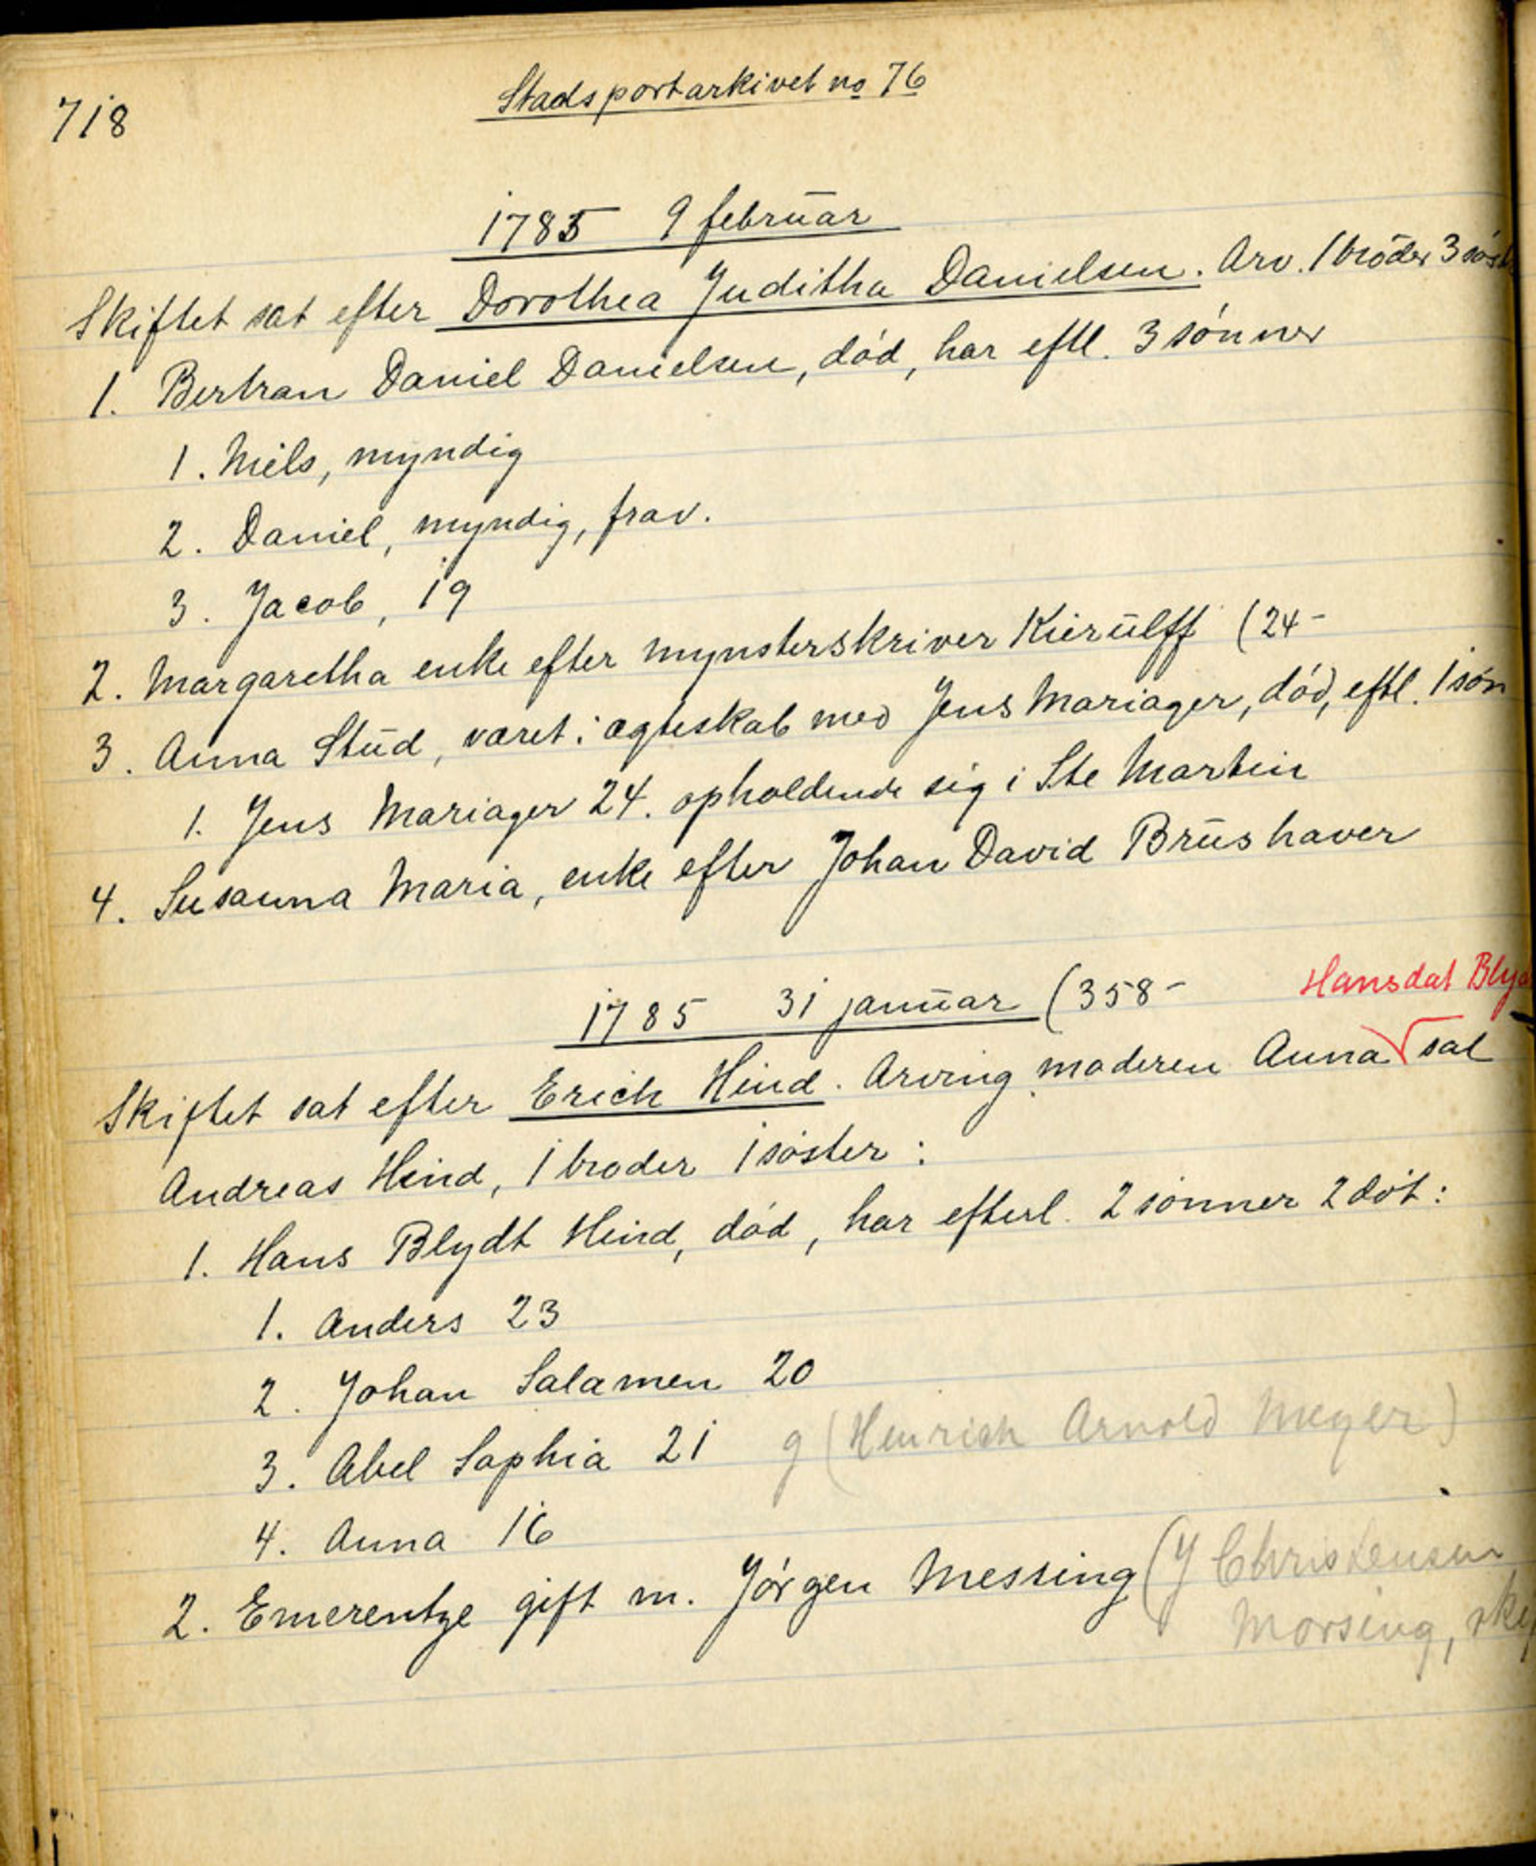 718
Stadsportarkivet no 76
1785 9 februar
Skiftet sat efter Dorothea Juditha Danielsen. Arv. 1 broder 3
1. Bertran Daniel Danielsen, död, har eftl. 3 sönner
1. Niels, myndig
2. Daniel, myndig, frav.
3. Jacob, 19
2. Margaretha enke efter mynsterskriver Kierulff (24-
3. Anna Stud, været i ægteskab med Jens Mariager, död, eftl. 1 sön
1. Jens Mariager 24. opholdende sig i Ste Martin
4. Susanna Maria, enke efter Johan David Brushaver
1785 31 januar (358-
Hansdat
Skiftet sat efter Erich Hind. Arving moderen Anna √ sal
Andreas Hind, 1 broder 1 söster:
1. Hans Blydt Hind, död, har efterl. 2 sönner 2 döt:
1. Anders 23
2. Johan Salamen 20
3. Abel Sophia 21 g (Henrich Arnold Meyer)
4. Anna 16
2. Emerentze gift m. Jörgen Messing (J Christensen
Morsing,